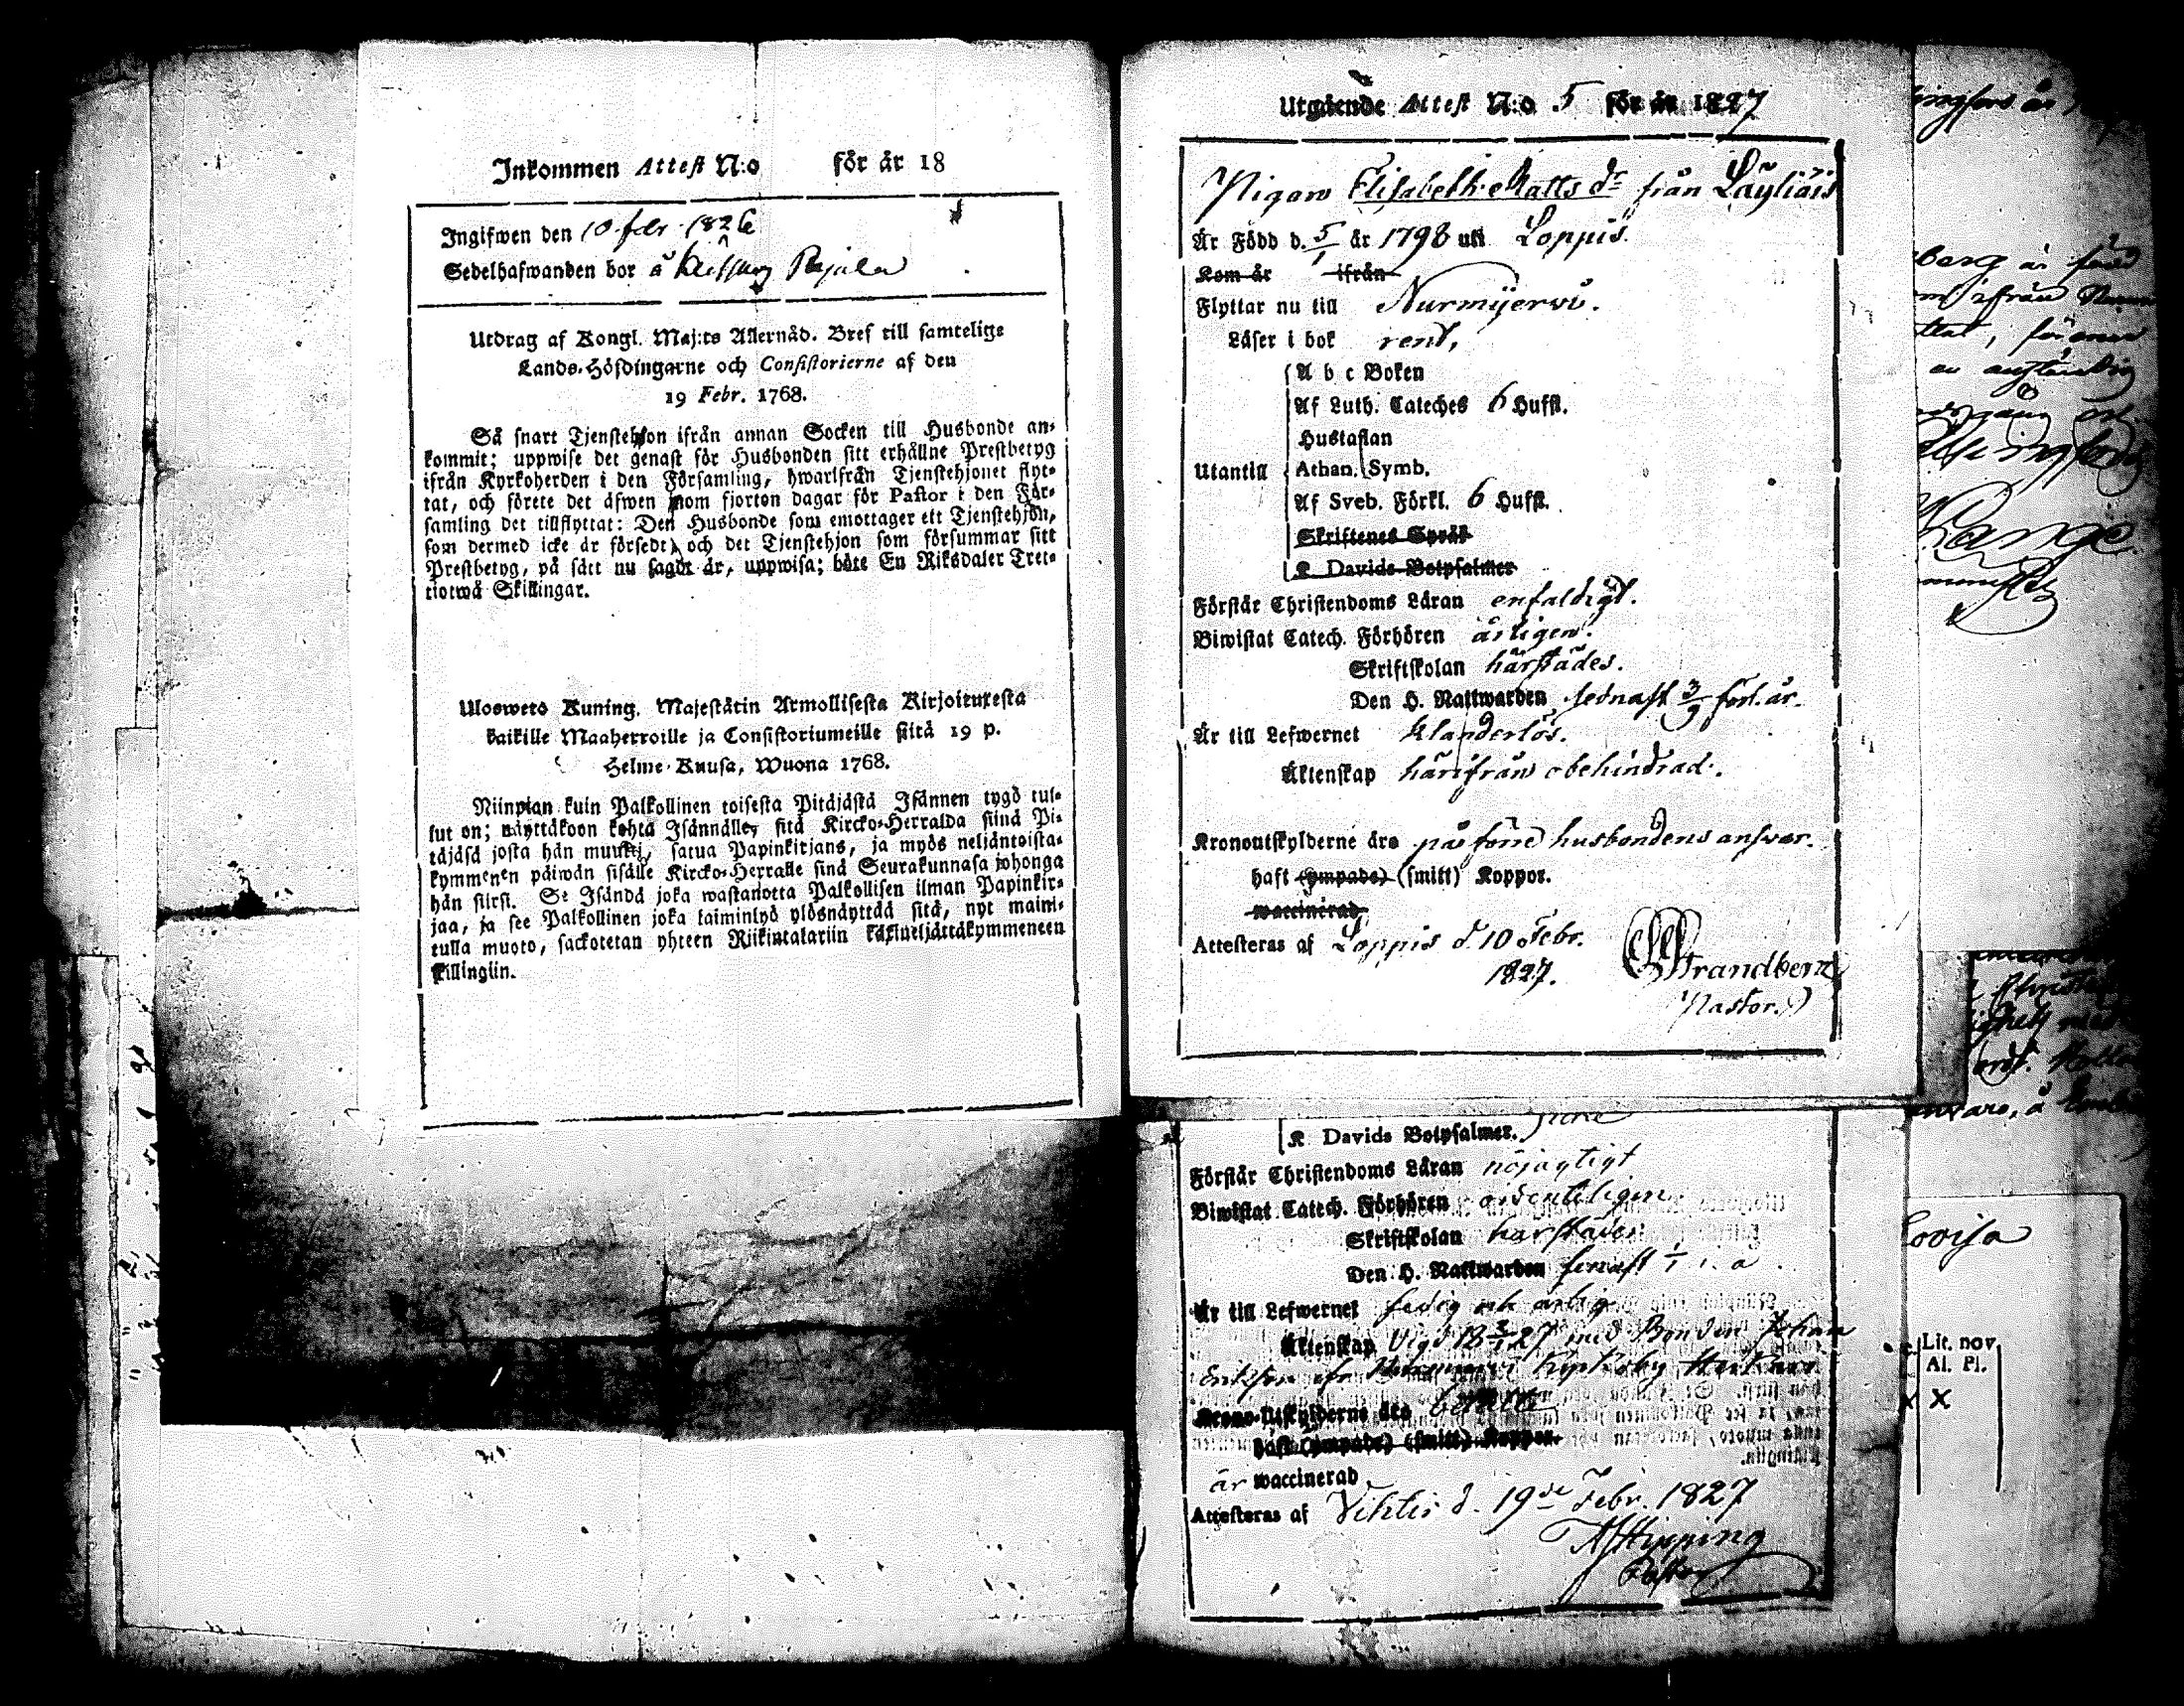 Inkommen Attest N:o för år 18
Ingifwen den 10 febr 1826
Sedelhafwanden bor å
Utdrag af Kongl. Maj:ts Allernåd. Bref till samtelige
Lands-Höfdingarne och Consistorierne af den
19 Febr. 1768.
Så snart Tjenstehjon ifrån annan Socken till Husbonde an-
kommit; uppwise det genast för Husbonden sitt erhållne Prestbetyg
ifrån Kyrkoherden i den Församling, hwarifrån Tjenstehjonet flyt-
tat, och förete det äfwen inom fjorton dagar för Pastor i den För-
samling det tillflyttat: Den Husbonde som emottager ett Tjenstehjon,
som dermed icke är försedt, och det Tjenstehjon som försummar sitt
Prestbetyg, på sätt nu sagdt är, uppwisa; böte En Riksdaler Tret-
tiotwå Skillingar.
Ulosweto Kuning. Majestätin Armollisesta Kirjoituxesta
kaikille Maaherroille ja Consistoriumeille siitä 19 p.
Helme-Kuusa, Wuona 1768.
Niinpian kuin Palkollinen toisesta Pitäjästä Isännen tygö tul-
lut on; näyttäkoon kohta Isännälle, sitä Kircko-Herralda siinä Pi-
täjäsä josta hän muutti, saatua Papinkirjans, ja myös neljäntoista-
kymmenen päiwän sisälle Kircko-Herralle siinä Seurakunnasa johonga
hän siirsi. Se Isändä joka wastanotta Palkollisen ilman Papinkir-
jaa, ja see Palkollinen joka laiminlyö ylösnäyttää sitä, nyt maini-
tulla muoto, sackotetan yhteen Riikintalariin käxineljättäkymmeneen
killingiin.
Utgående Attest N:o 5 för år 1827
Pigan Elisabeth Matts dr från Läyliäis
Är Född d. 5/1 år 1798 uti Loppis.
Kom år ifrån
Flyttar nu till Nurmijerwi.
Läser i bok rent,
A b c Boken
Af Luth. Cateches 6 Hufst.
Hustaflan
Utantill Athan. Symb.
Af Sveb. Förkl. 6 Hufst.
Skriftenes Språk
K. Davids Botpsalmer
Förstår Christendoms Läran enfaldigt.
Biwistat Catech. Förhören årligen.
Skriftskolan härstädes.
Den H. Nattwarden sednast 3/9 förl. år.
Är till Lefwernet klanderlös.
Äktenskap härifrån obehindrad.
Kronoutskylderne äro på förre husbondens answar.
haft (ympade) (smitt) Koppor.
waccinerad
Attesteras af Loppis d. 10 Febr.
1827. Strandberg
Pastor.
K. Davids Botpsalmer.
Förstår Christendoms Läran nöjagtigt
Biwistat Catech. Förhören ordenteligen
Skriftskolan härstädes
Den H. Nattwarden senast 1/1 i. a
Är till Lefwernet sedig och ärlig
Äktenskap Vigd 18 3/1 27 med Bonden Johan
Eriksson
Krono-Utskylderne äro betalte
haft (ympade) (smitt) Koppor.
är waccinerad
Attesteras af Vihtis d. 19de Febr. 1827
Hipping
Pastor
ifrån
Lange
Lovisa
Lit. nov
Al. Pl.
x x